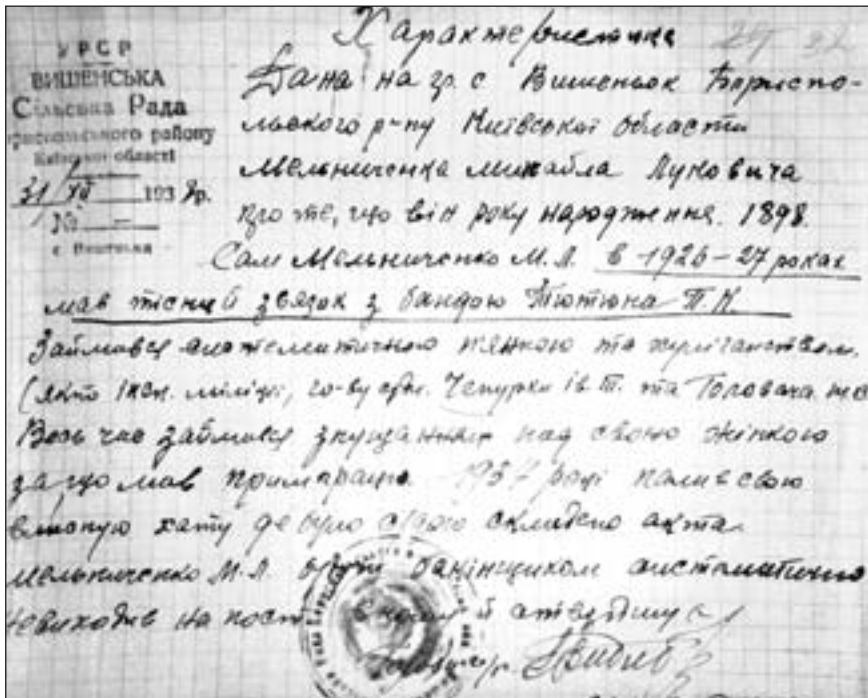 Характеристика
УРСР
ВИШЕНСЬКА
Сільська Рада
Бориспольського району
Київської області
31/XII 1938р.
№ —
с Вишеньки
Дана на гр. с Вишеньок Бориспо-
льского р-ну Київської области
Мельниченка Михайла Луковича
про те, що він року народження. 1898.
Сам Мельниченко М.Л. в 1926-27 роках
мав тісний звязок з бандою Тютюна П.К.
Займався систематичною пянкою та хуліганством.
міліції, Чепурки Ів. та Головача
Весь час займався знущанням над своею жінкою
за що мав 1937 році палив свою
власную хату де було складено акта
Мельниченко М.Л. систематично
невиходив на пост в чому й